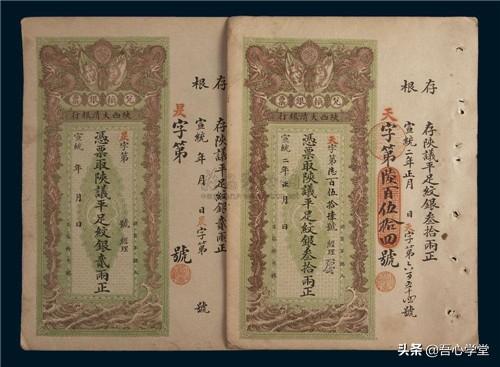 存根
存陝議平足紋銀叁拾兩正
宣統二年正月 日天字第六百五十四號
天字第陸百伍拾四號
兌換銀票
陝西大清銀行
天字第陸百伍拾肆號 經理
憑票取陝議平足紋銀叁拾兩正
宣統二年正月 日
存根
存陝議平足紋銀貳兩正
宣統 年 月 日昃字第 號
昃字第 號
兌換銀票
陝西大清銀行
昃字第 號 經理
憑票取陝議平足紋銀貳兩正
宣統 年 月 日
头条 @吾心学堂